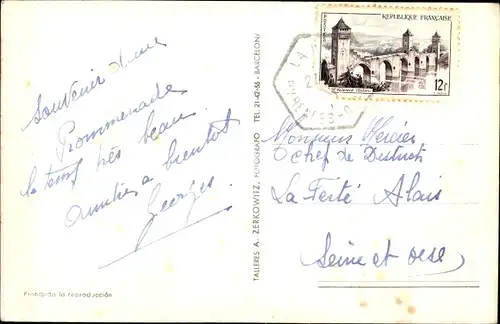 Souvenir d'une
Prommenade
le temps très beau
Amitiés a bientot
Georges
Prohibida la reproducción
TALLERES A. ZERKOWITZ, FOTOGRAFO TEL. 21-42-55 - BARCELONA
REPUBLIQUE FRANÇAISE
12F
Monsieur Mercier
chef de District
La Ferté Alais
Seine et oise